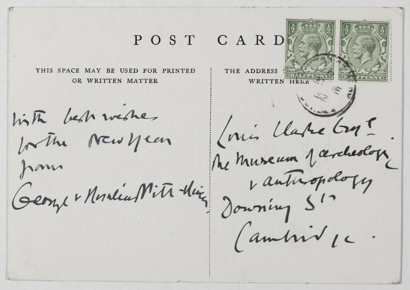 POST CARD
THIS SPACE MAY BE USED FOR PRINTED
OR WRITTEN MATTER
THE ADDRESS
WRITTEN HERE
With best wishes
for the New Year
from
George & Rosalind Pitt-Rivers
Louis Clarke Esqre
The Museum of archeology
& anthropology
Downing St
Cambridge.